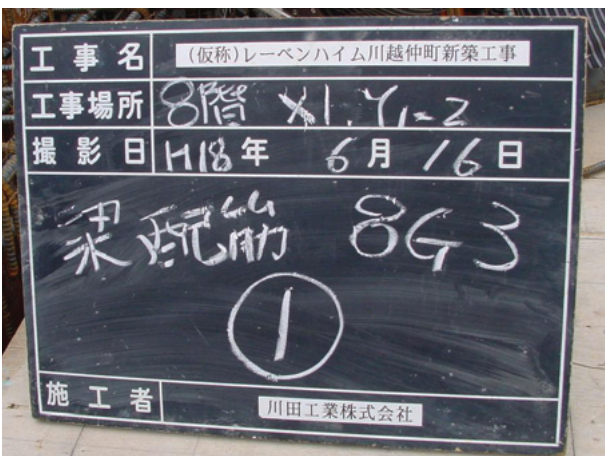 工事名 (仮称)レーベンハイム川越仲町新築工事
工事場所 8階 X1. Y1-2
撮影日 H18年 6月 16日
梁配筋 8G3
①
施工者 川田工業株式会社